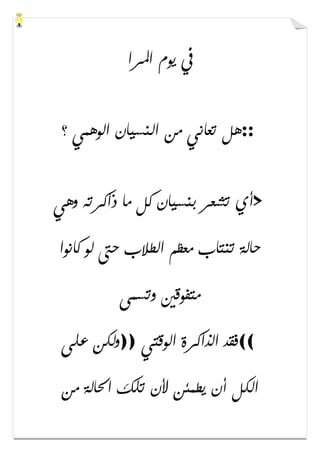 في يوم المرا
::هل تعاني من النسيان الوهمي ؟
>أي تشعر بنسيان كل ما ذاكرته وهي
حالة تنتاب معظم الطلاب حتى لو كانوا
متفوقين وتسمى
((فقد الذاكرة الوقتي ((ولكن على
الكل أن يطمئن لأن تلك الحالة من